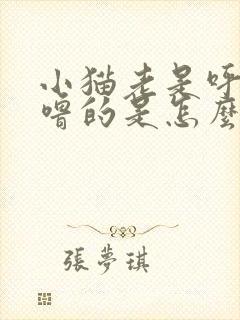 小猫老是呼
噜的是怎麼
張夢琪